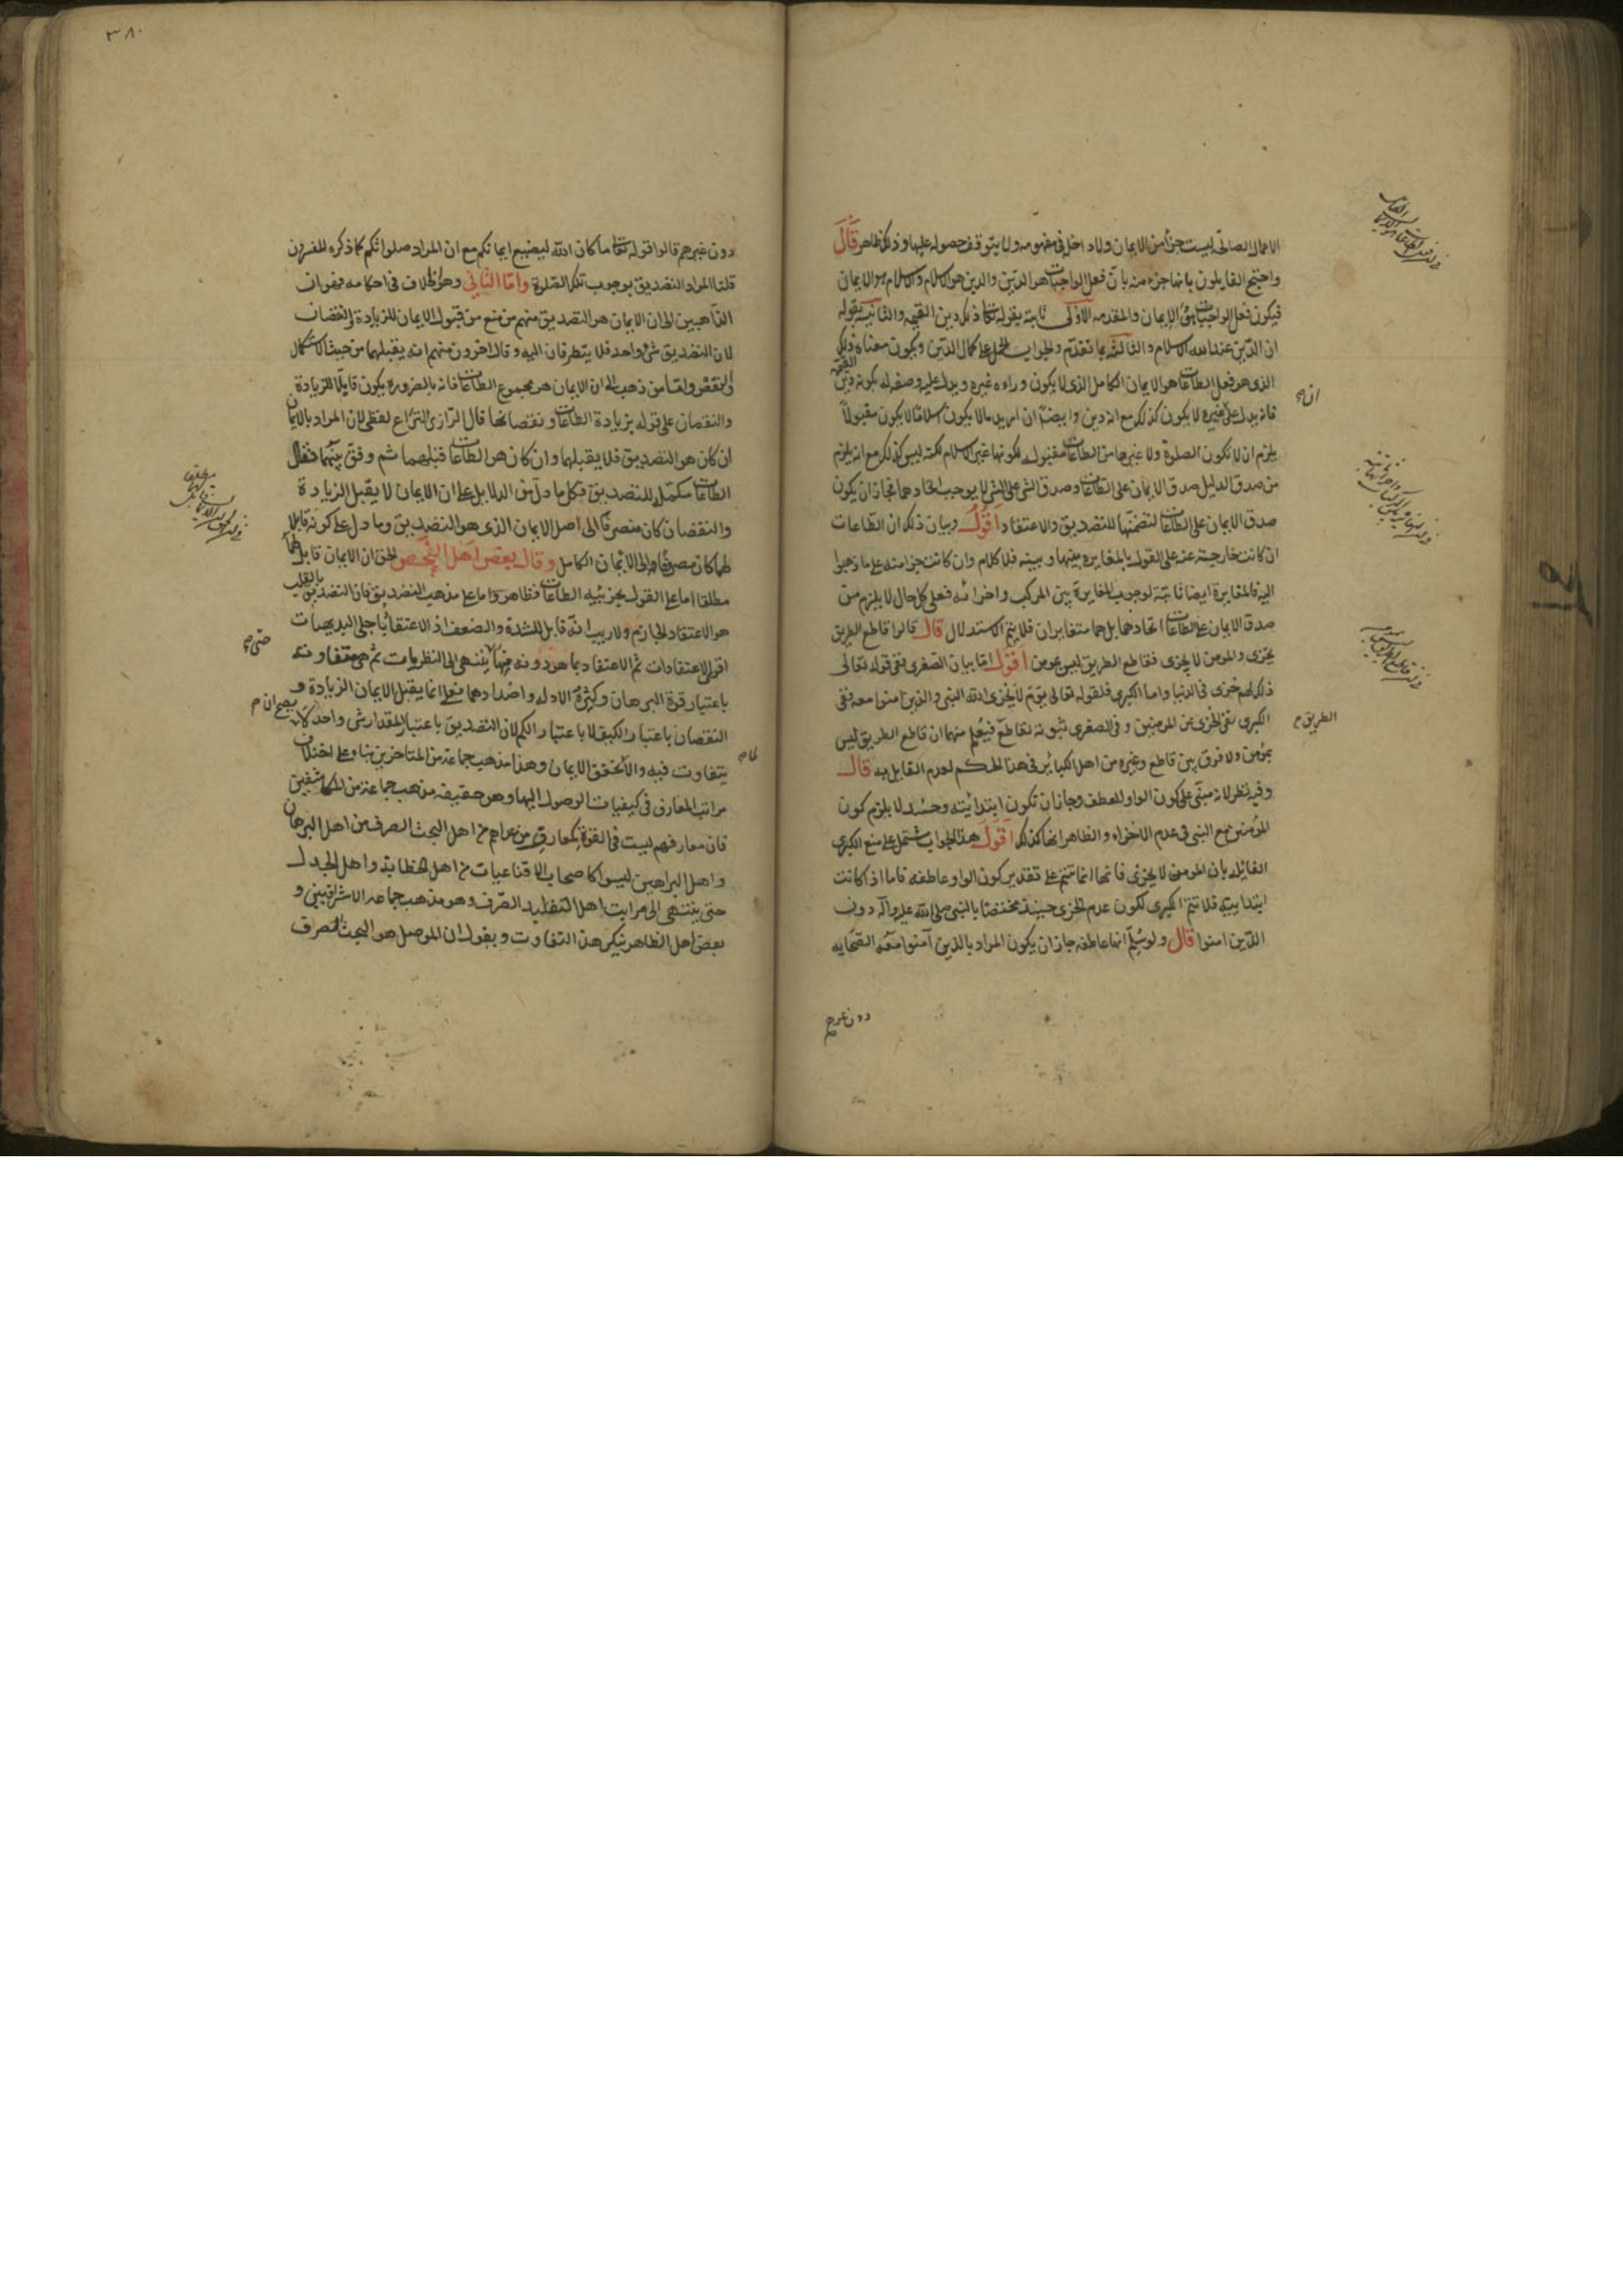 الاعمال الصالحة ليست جزأ من الايمان ولا داخل في مفهومه ولا يتوقف حصوله عليها وذلك ظاهر قال
واحتج القايلون بانها جزء منه بأن فعل الواجبات هو الدين والدين هو الاسلام والاسلام هو الايمان
فيكون فعل الواجبات هو الايمان والمقدمه الاولى ثابتة بقوله تعا ذلك دين القيمه والثانيه بقوله
ان الدين عند الله الاسلام والثالثه بما تقدم والجواب لحمل على كمال الدين ويكون معناه وذلك
الذي هو فعل الطاعات هو الايمان الكامل الذي لا يكون وراءه غيره ويدل عليه وصفه له بكونه دين القيمه
فانه يدل على غيره لا يكون كذلك مع انه دين وايضا ان اريد مالا يكون اسلاما لا يكون مقبولا
يلزم ان لا تكون الصلوة ولا غيرها من الطاعات مقبوله لكونها غير الاسلام لكنه ليس كذلك مع انه يلزم
من صدق الدليل صدق الايمان على الطاعات وصدق الشي على الشي لا يوجب اتحادهما فجاز ان يكون
صدق الايمان على الطاعات لتضمنها للتصديق والاعتقاد اقول وبيان ذلك ان الطاعات
ان كانت خارجة عنه على القول بالمغايره بينها وبينه فلا كلام وان كانت جزا منه على ما ذهبوا
اليه فالمغايرة ايضا ثابتة لوجوب المغايرة بين المركب واجزائه فعلى كل حال لا يلزم من
صدق الايمان على الطاعات اتحادهما بل هما متغايران فلا يتم الاستدلال قال قالوا قاطع الطريق
يخزى والمومن لا يخزى فقاطع الطريق ليس بمومن اقول اما بيان الصغرى ففي قوله تعالى
ذلك لهم خزى في الدنيا واما الكبرى فلقوله تعالى يوم لا يخزى الله النبي والذين امنوا معه نفى
الكبرى نفى الخزى عن المومنين وفي الصغرى ثبوته لقاطع فيعلم منهما ان قاطع الطريق ليس
بمؤمن ولا فرق بين قاطع وغيره من اهل الكبائر في هذا الحكم لعدم القايل به قال
وفيه نظر لانه مبني على كون الواو للعطف وجاز ان تكون ابتدائيته وحينئذ لا يلزم كون
المؤمنين مع النبي في عدم الاخزاء والظاهر انها كذلك اقول هذا الجواب يشتمل على منع الكبرى
القائله بان المومن لا يخزى فانها انما تتم على تقدير كون الواو عاطفه فاما اذا كانت
ابتداييه فلا تتم الكبرى لكون عدم الخزى حينئذ مختصا بالنبي صلى الله عليه واله دون
الذين امنوا قال ولو سلم انها عاطفه جاز ان يكون المراد بالذين آمنوا معه الصحابه
دون غيرهم
ان
الطريق
٣٨٠
دون غيرهم قالوا قوله تعا ما كان الله ليضيع ايمانكم مع ان المراد صلواتكم كما ذكره المفسرون
قلنا المراد التصديق بوجوب تلك الصلوة واما الثاني وهو الخلاف في احكامه فهو ان
الذاهبين الى ان الايمان هو التصديق منهم من منع من قبول الايمان للزيادة والنقصان
لان التصديق شي واحد فلا يتطرقان اليه وقال اخرون منهم انه يقبلهما من حيث الاستكمال
والنقص واما من ذهب الى ان الايمان هو مجموع الطاعات فانه بالضرورة يكون قايلا للزيادة
والنقصان على قوله بزيادة الطاعات ونقصانها قال الرازي النزاع لفظي لان المراد بالايمان
ان كان هو التصديق فلا يقبلهما وان كان هو الطاعات قبلهما ثم وفق بينهما فقال
الطاعات مكمل للتصديق فكل ما دل من الدلايل على ان الايمان لا يقبل الزيادة
والنقصان كان منصرفا الى اصل الايمان الذي هو التصديق وما دل على كونه قابلا
لهما كان مصروفا الى الايمان الكامل وقال بعض اهل التحص الحق ان الايمان قابل لهما
مطلقا اما على القول بجزئيه الطاعات فظاهر واما على مذهب التصديق فان التصديق بالقلب
هو الاعتقاد الجازم ولا ريب انه قابل للشدة والضعف اذ الاعتقاد باجلى البديهيات
اقوى الاعتقادات ثم الاعتقاد بما هو دونه منها ينتهي الى النظريات ثم هي متفاوته
باعتبار قوة البرهان وكثرة الادله واضدادهما فعلى انما يقبل الايمان الزيادة و
النقصان باعتبار الكيف لا باعتبار الكم لان التصديق باعتبار المقدار شي واحد
يتفاوت فيه والا تحقق الايمان وهذا مذهب جماعة من المتاخرين بناء على اختلاف
مراتب المعارف في كيفيات الوصول اليها وهو حقيقه مذهب جماعة من المكاشفين
فان معارفهم ليست في القوة كمعارف من عداهم من اهل البحث الصرف من اهل البرهان
واهل البراهين ليسوا كاصحاب الاقناعيات من اهل الخطابه واهل الجدل
حتى ينتهي الى مراتب اهل التقليد الصرف وهو مذهب جماعه الاشراقيين و
بعض اهل الظاهر ينكر هذا التفاوت ويقول ان الموصل هو البحث الصرف
حتى
يصح ان